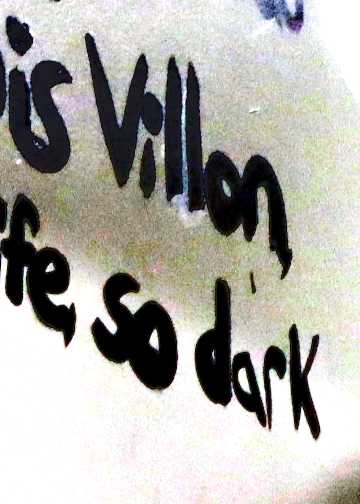 is Villon,
fe, so dark